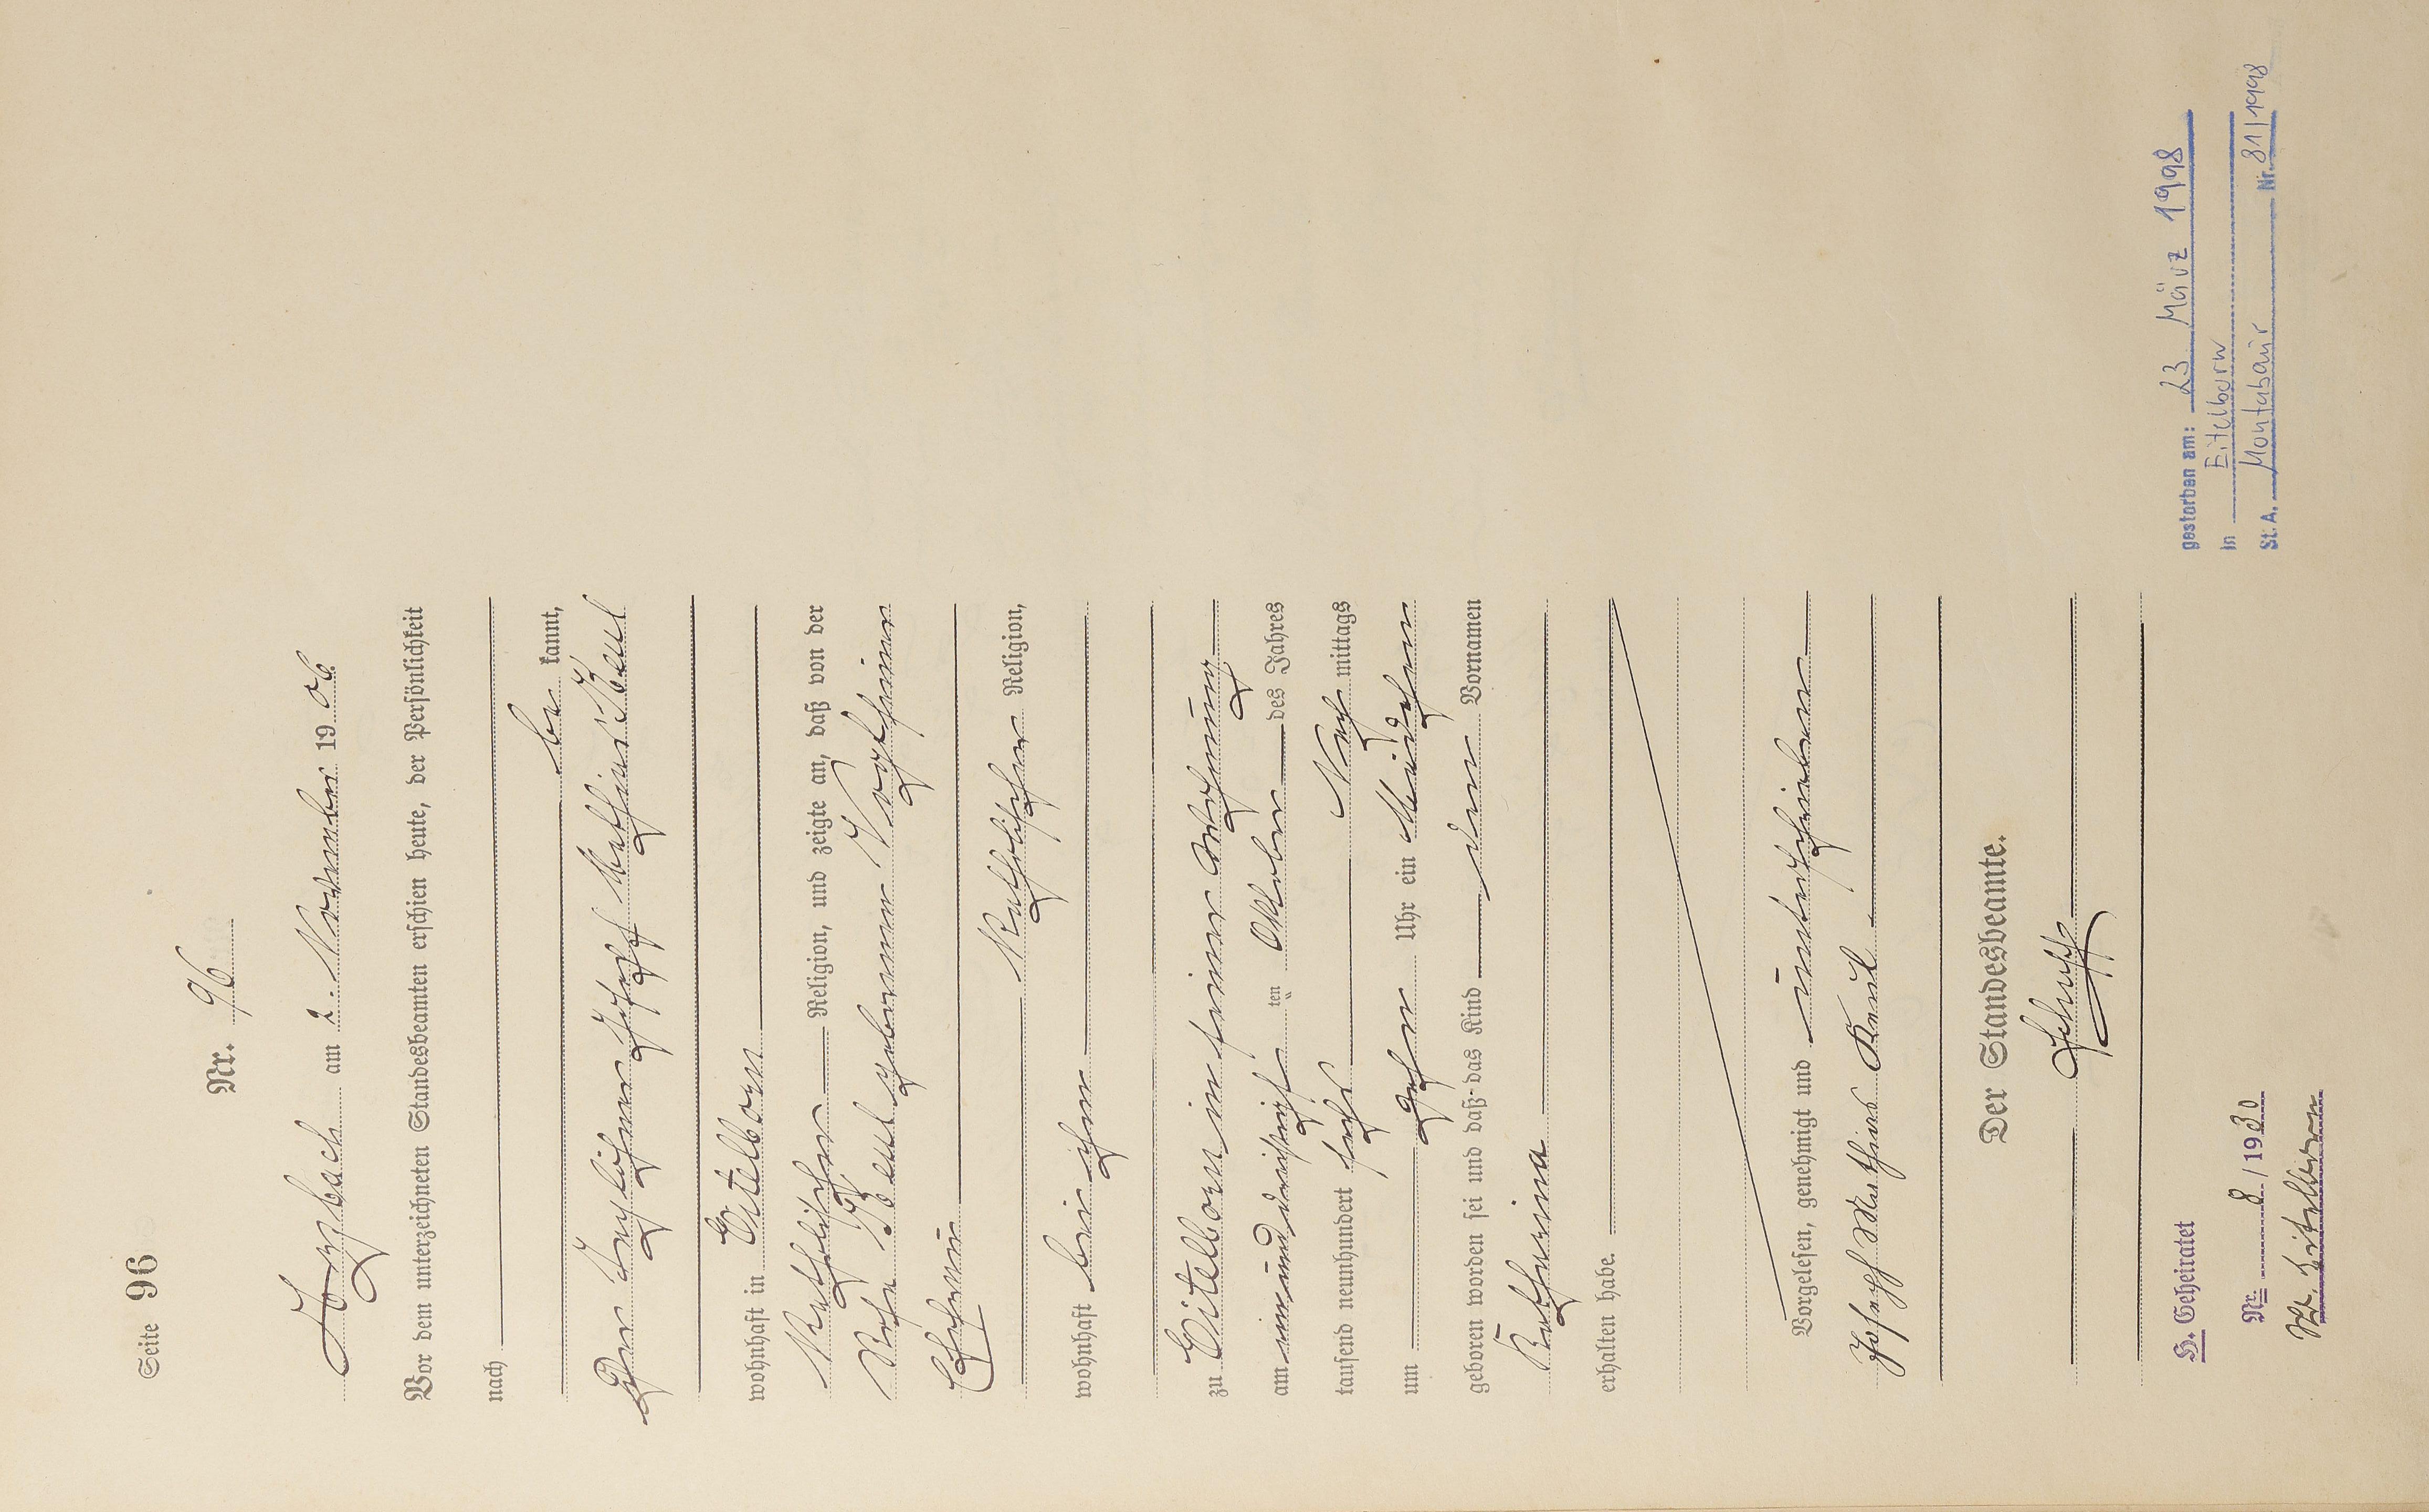 Seite 96
Nr. 96
Arzbach am 2. November 19 06
Vor dem unterzeichneten Standesbeamten erschien heute, der Persönlichkeit
nach
be kannt,
Der Taglöhner Josef Mathias Keul
wohnhaft in Eitelborn
Katholischer Religion, und zeigte an, daß von der
Keul geborenen
Ehefrau
Katholischer Religion,
wohnhaft bei ihm
zu Eitelborn in seiner Wohnung
am einunddreißigsten Oktober des Jahres
tausend neunhundert sechs Nach mittags
um zehn Uhr ein Mädchen
geboren worden sei und daß das Kind den Vornamen
Katharina
erhalten habe.
Vorgelesen, genehmigt und unterschrieben
Josef Mathias Keul.
Der Standesbeamte.
H. Geheiratet
Nr. 8 / 1930
St. A. Eitelborn
gestorben am: 23 März 1998
in Eitelborn
St. A. Montabaur Nr. 81/1998